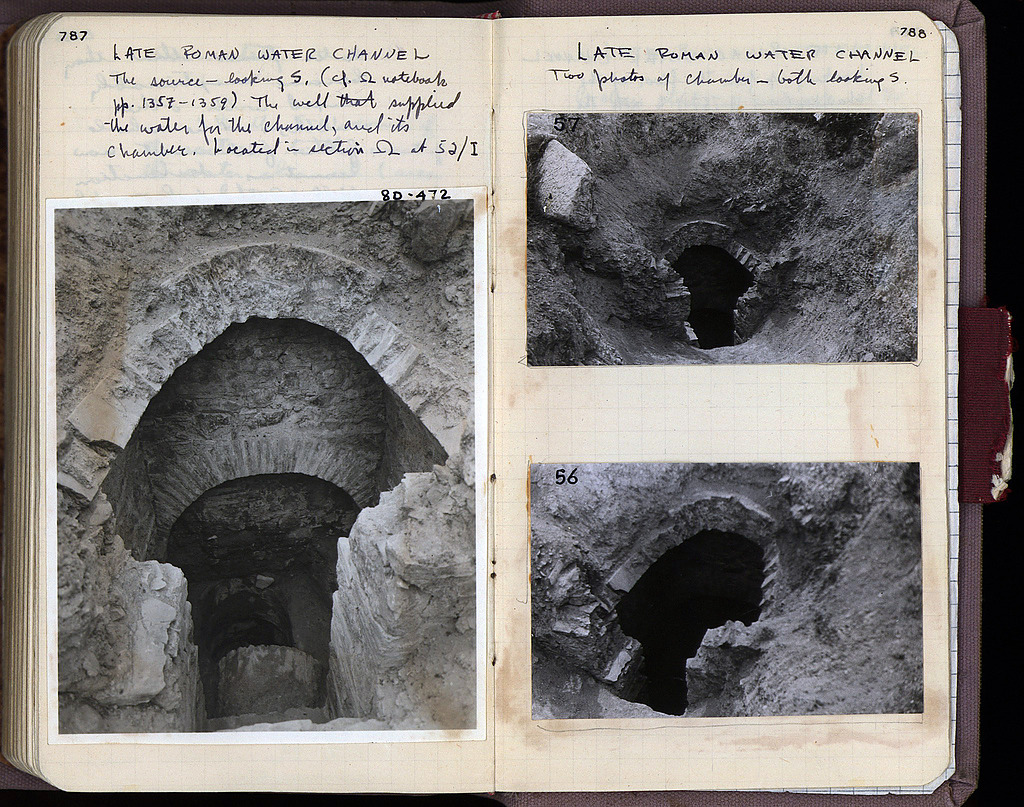 787
LATE ROMAN WATER CHANNEL
The source – looking S. (cf. Ω notebook
pp. 1357–1359) The well that supplied
the water for the channel, and its
chamber. Located in section Ω at 52/I
80-472
788
LATE ROMAN WATER CHANNEL
Two photos of chamber – both looking S.
57
56